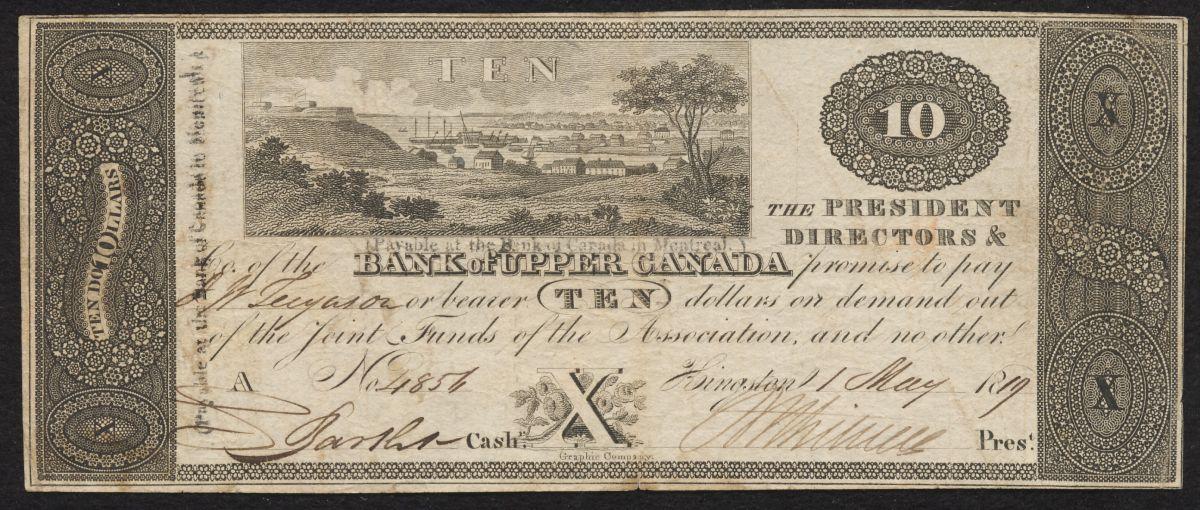 TEN
10
THE PRESIDENT
DIRECTORS &
(Payable at the Bank of Canada in Montreal.)
Co. of the BANK of UPPER CANADA promise to pay
Ferguson or bearer TEN dollars on demand out
of the Joint Funds of the Association, and no other.
A No 4856 X Kingston 1 May 1819
Cashr. Prest.
Graphic Company.
X
TEN DOLLARS
10
X
Payable at the Bank of Canada in Montreal
X
X